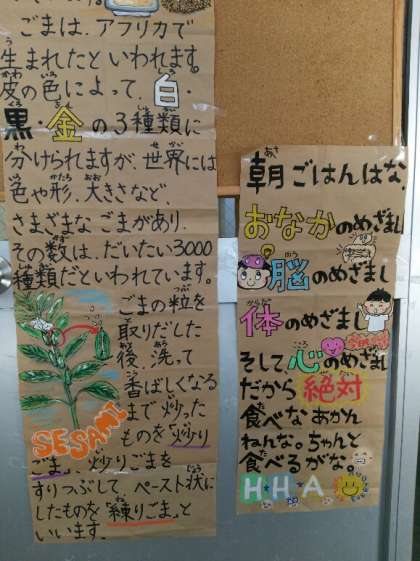 ごまは、アフリカで
生まれたといわれます。
皮の色によって、白・
黒・金の3種類に
分けられますが、世界には
色や形、大きさなど、
さまざまなごまがあり、
その数は、だいたい3000
種類だといわれています。
ごまの粒を
取りだした
後、洗って
香ばしくなる
まで炒った
ものを「炒り
ごま」、炒りごまを
すりつぶして、ペースト状に
したものを「練りごま」と
いいます。
SESAMI
朝ごはんはな、
おなかのめざまし
脳のめざまし
体のめざまし
そして、心のめざまし
だから絶対
食べなあかん
ねんな。ちゃんと
食べるがな。
H・H・A